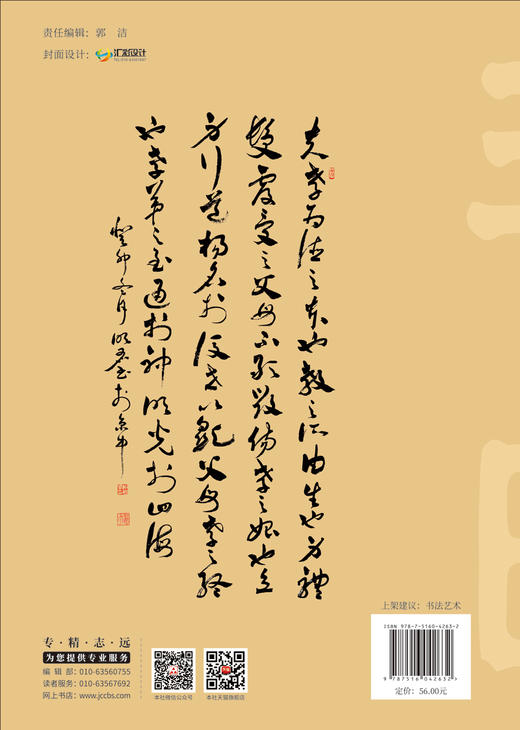 责任编辑：郭　洁
封面设计：汇彩设计
夫孝为德之本也教之所由生也身體
髮膚受之父母不敢毁傷孝之始也立
身行道揚名於後世以顯父母孝之終
也孝弟之至通於神明光於四海
癸卯
上架建议：书法艺术
ISBN 978-7-5160-4263-2
9 787516 042632
定价：56.00元
专·精·志·远
为您提供专业服务
编辑部：010-63560755
读者服务：010-63567692
网上书店：www.jccbs.com
本社微信公众号
本社天猫旗舰店